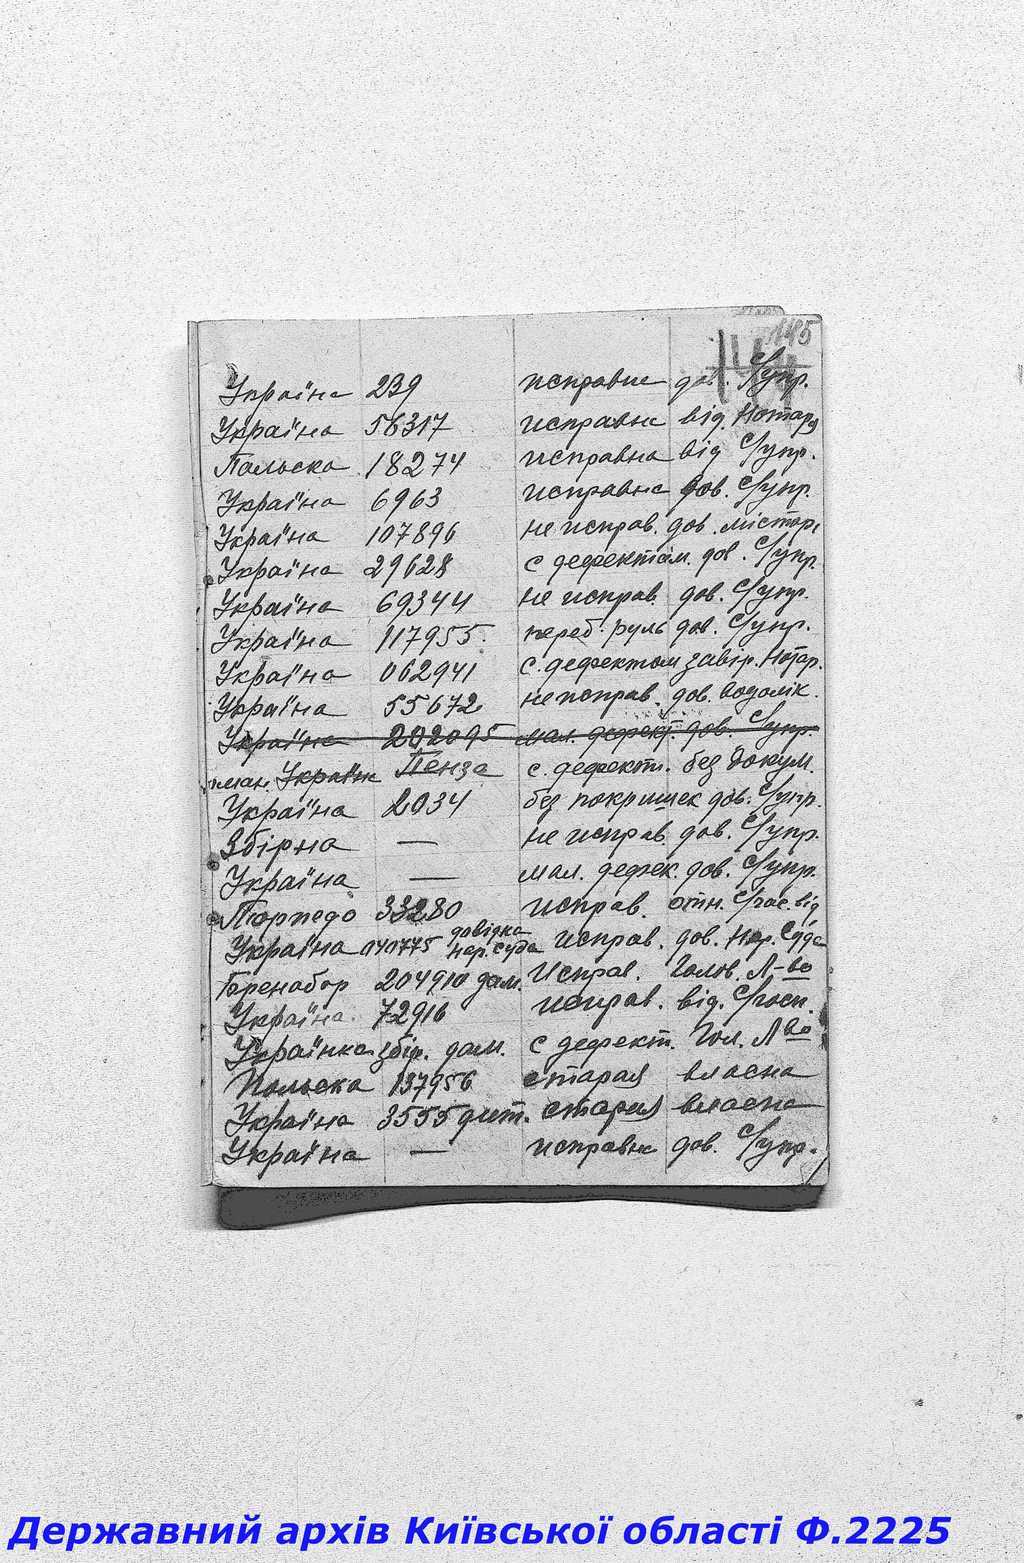 145
144
Україна 239 исправна дов. С/упр.
Україна 56317 исправна від. Нотар
Польска 18274 исправна від С/упр.
Україна 6963 исправна дов. С/упр.
Україна 107896 не исправ. дов.
Україна 29628 с дефектом. дов. С/упр.
Україна 69344 не исправ. дов. С/упр.
Україна 117955. переб. руль дов. С/упр.
Україна 062941 с. дефектом завір. Нотар.
Україна 55672 не исправ. дов.
Україна 202095 мал. дефект. дов. С/упр.
Україна Пенза с. дефект. без докум.
Україна 2034 без покришек дов. С/упр.
Збірна — не исправ. дов. С/упр.
Україна — мал. дефек. дов. С/упр.
Торпедо 33280 исправ. від
Україна 141775 довідка нар. суда исправ. дов. Нар. Суда
204910 дам. Исправ. Голов. Л-во
Україна. 72916 исправ. від. С/госп.
Українка збір. дам. с дефект. Гол. Л-во
Польска 137956 старая власна
Україна 3555 дит. старая власна
Україна — исправна дов. С/упр.
Державний архів Київської області Ф.2225